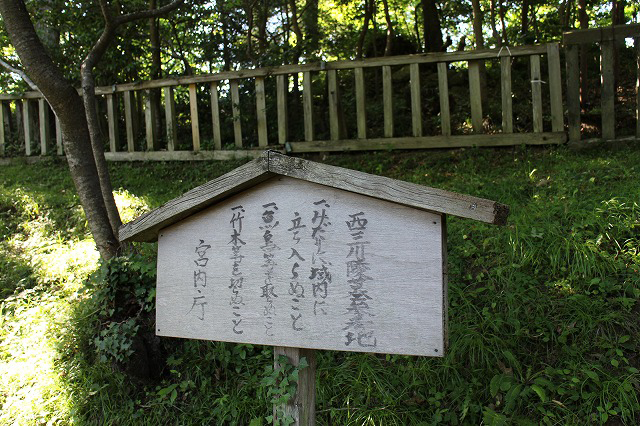 西三川陵墓参考地
一、みだりに域内に
立ち入らぬこと
一、魚鳥等を取らぬこと
一、竹木等を切らぬこと
宮内庁